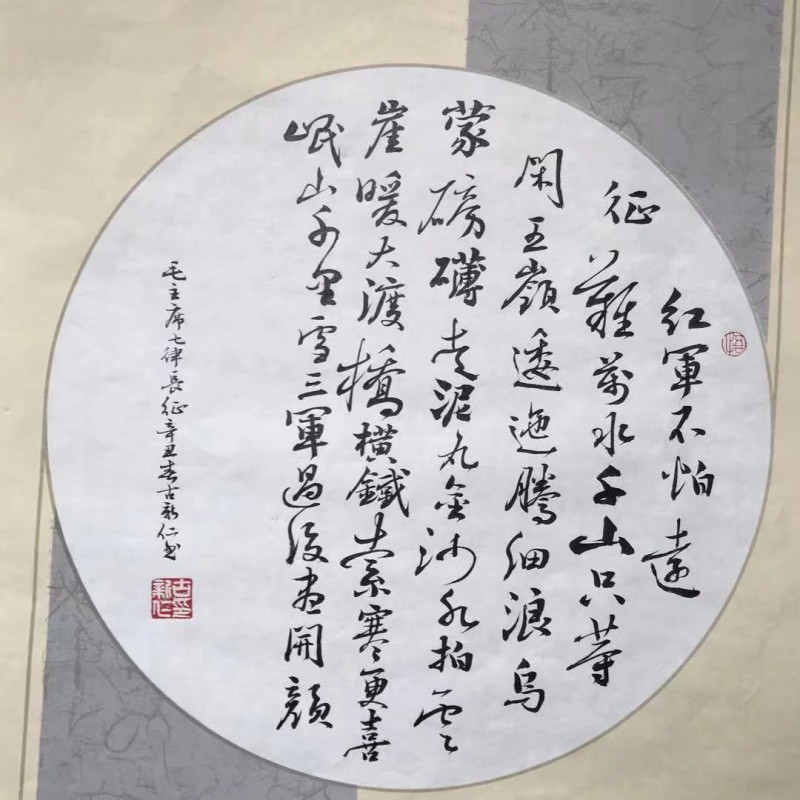 红軍不怕遠
征難萬水千山只等
閑五嶺逶迤騰細浪烏
蒙磅礴走泥丸金沙水拍雲
崖暖大渡橋橫鐵索寒更喜
岷山千里雪三軍過後盡開顔
毛主席七律長征辛丑春古新仁書
古新仁印